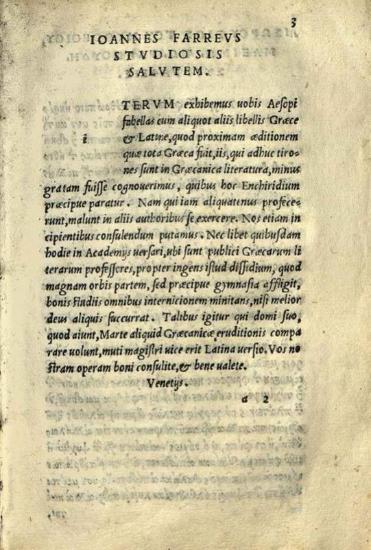 3
IOANNES FARREVS
STVDIOSIS
SALVTEM.
TERVM exhibemus uobis Aesopi
fabellas cum aliquot aliis libellis Græce
i
& Latine, quod proximam æditionem
quæ tota Græca fuit, iis, qui adhuc tiro-
nes sunt in Græcanica literatura, minus
gratam fuisse cognouerimus, quibus hoc Enchiridium
præcipue paratur. Nam qui iam aliquatenus profece-
runt, malunt in aliis authoribus se exercere. Nos etiam in
cipientibus consulendum putamus. Nec libet quibusdam
hodie in Academijs uersari, ubi sunt publici Græcarum li
terarum professores, propter ingens istud dissidium, quod
magnam orbis partem, sed præcipue gymnasia affligit,
bonis studiis omnibus internicionem minitans, nisi melior
deus aliquis succurrat. Talibus igitur qui domi suo,
quod aiunt, Marte aliquid Græcanicæ eruditionis compa
rare uolunt, muti magistri uice erit Latina uersio. Vos no
stram operam boni consulite, & bene ualete.
Venetijs.
a 2